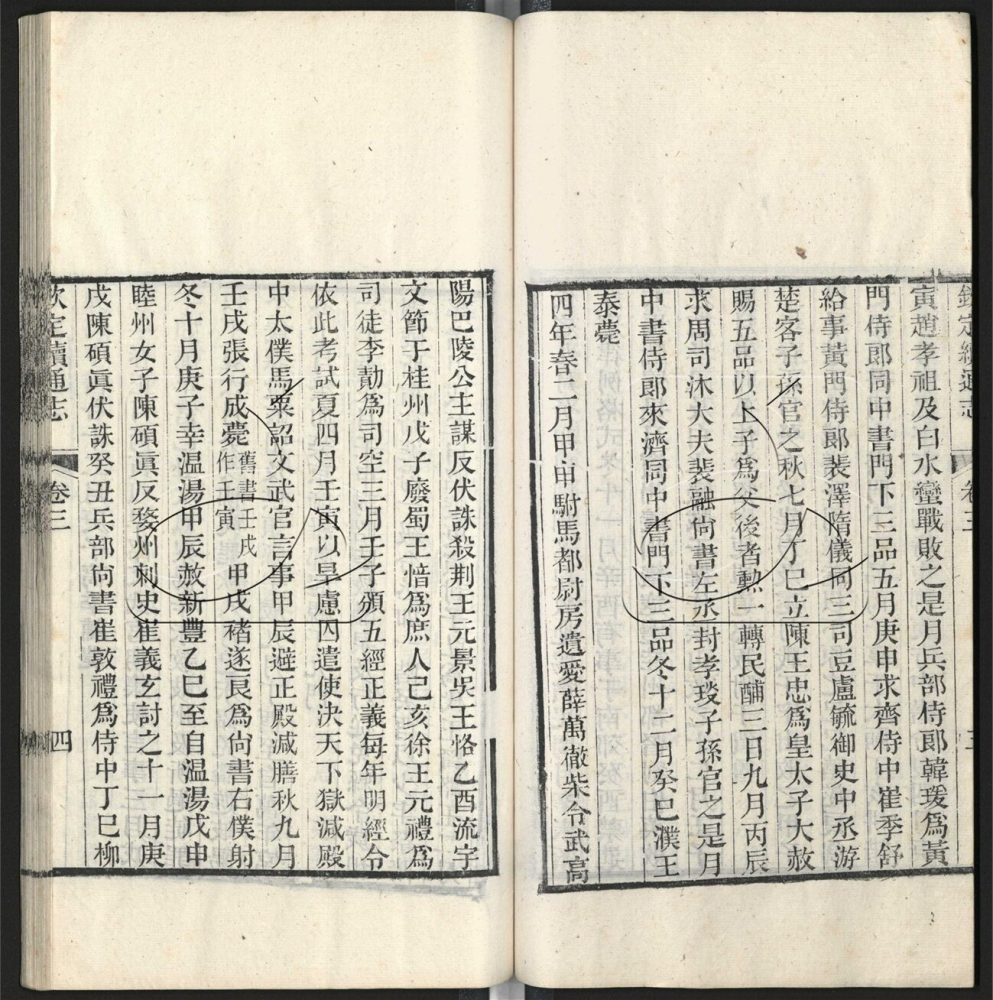 寅趙孝祖及白水蠻戰敗之是月兵部侍郎韓瑗爲黃
門侍郎同中書門下三品五月庚申求齊侍中崔季舒
給事黃門侍郎裴澤隋儀同三司豆盧毓御史中丞游
楚客子孫官之秋七月丁巳立陳王忠爲皇太子大赦
賜五品以上子爲父後者勲一轉民酺三日九月丙辰
求周司沐大夫裴融尚書左丞封孝琰子孫官之是月
中書侍郎來濟同中書門下三品冬十二月癸巳濮王
泰薨
四年春二月甲申駙馬都尉房遺愛薛萬徹柴令武高
陽巴陵公主謀反伏誅殺荆王元景吳王恪乙酉流宇
文節于桂州戊子廢蜀王愔爲庶人己亥徐王元禮爲
司徒李勣爲司空三月壬子頒五經正義每年明經令
依此考試夏四月壬寅以旱慮囚遣使決天下獄減殿
中太僕馬粟詔文武官言事甲辰避正殿減膳秋九月
壬戌張行成薨舊書壬戌作壬寅甲戌褚遂良爲尚書右僕射
冬十月庚子幸温湯甲辰赦新豐乙巳至自温湯戊申
睦州女子陳碩眞反婺州刺史崔義玄討之十一月庚
戌陳碩眞伏誅癸丑兵部尚書崔敦禮爲侍中丁巳柳
欽定續通志 卷三 四